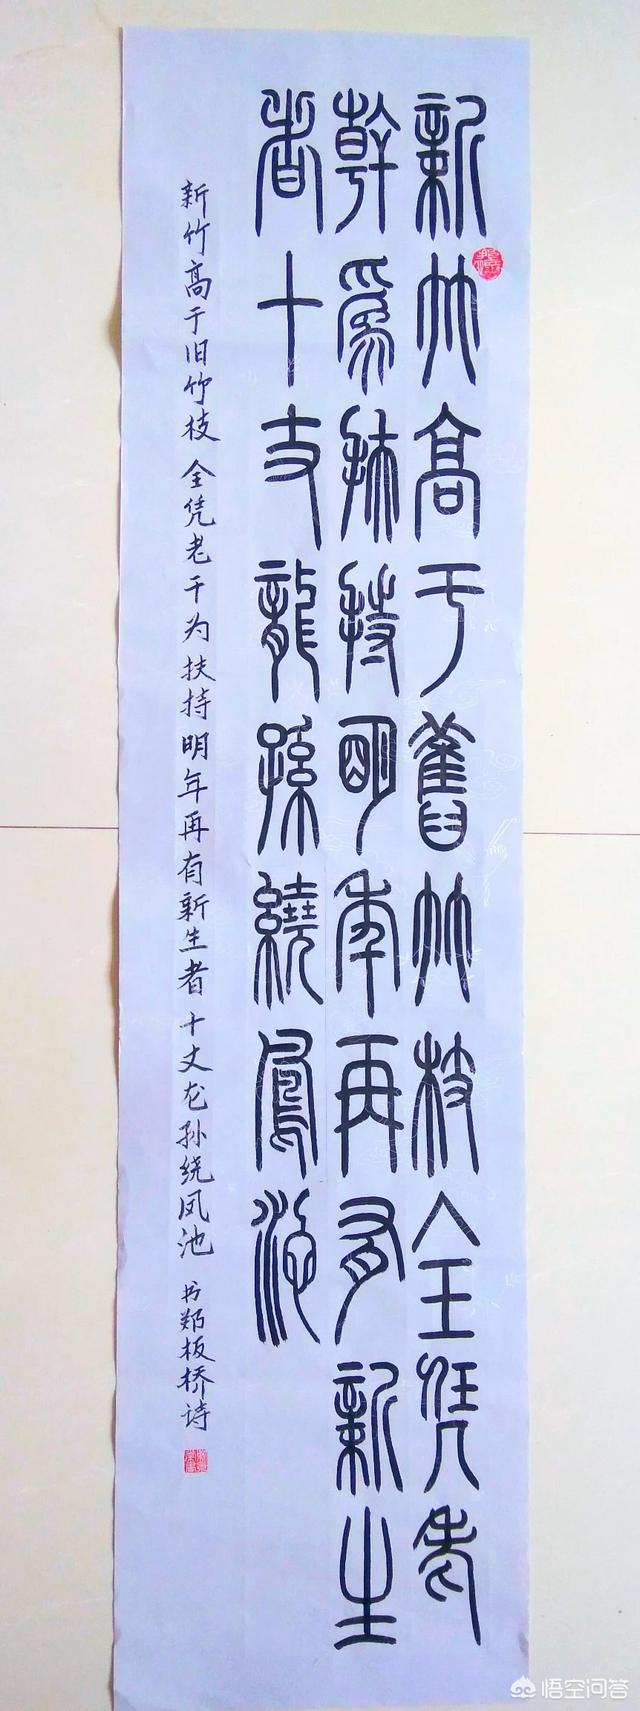 新竹高于舊竹枝全凭老
幹爲扶持明年再有新生
者十丈龍孫繞鳳池
新竹高于旧竹枝 全凭老干为扶持 明年再有新生者 十丈龙孙绕凤池 书郑板桥诗
悟空问答